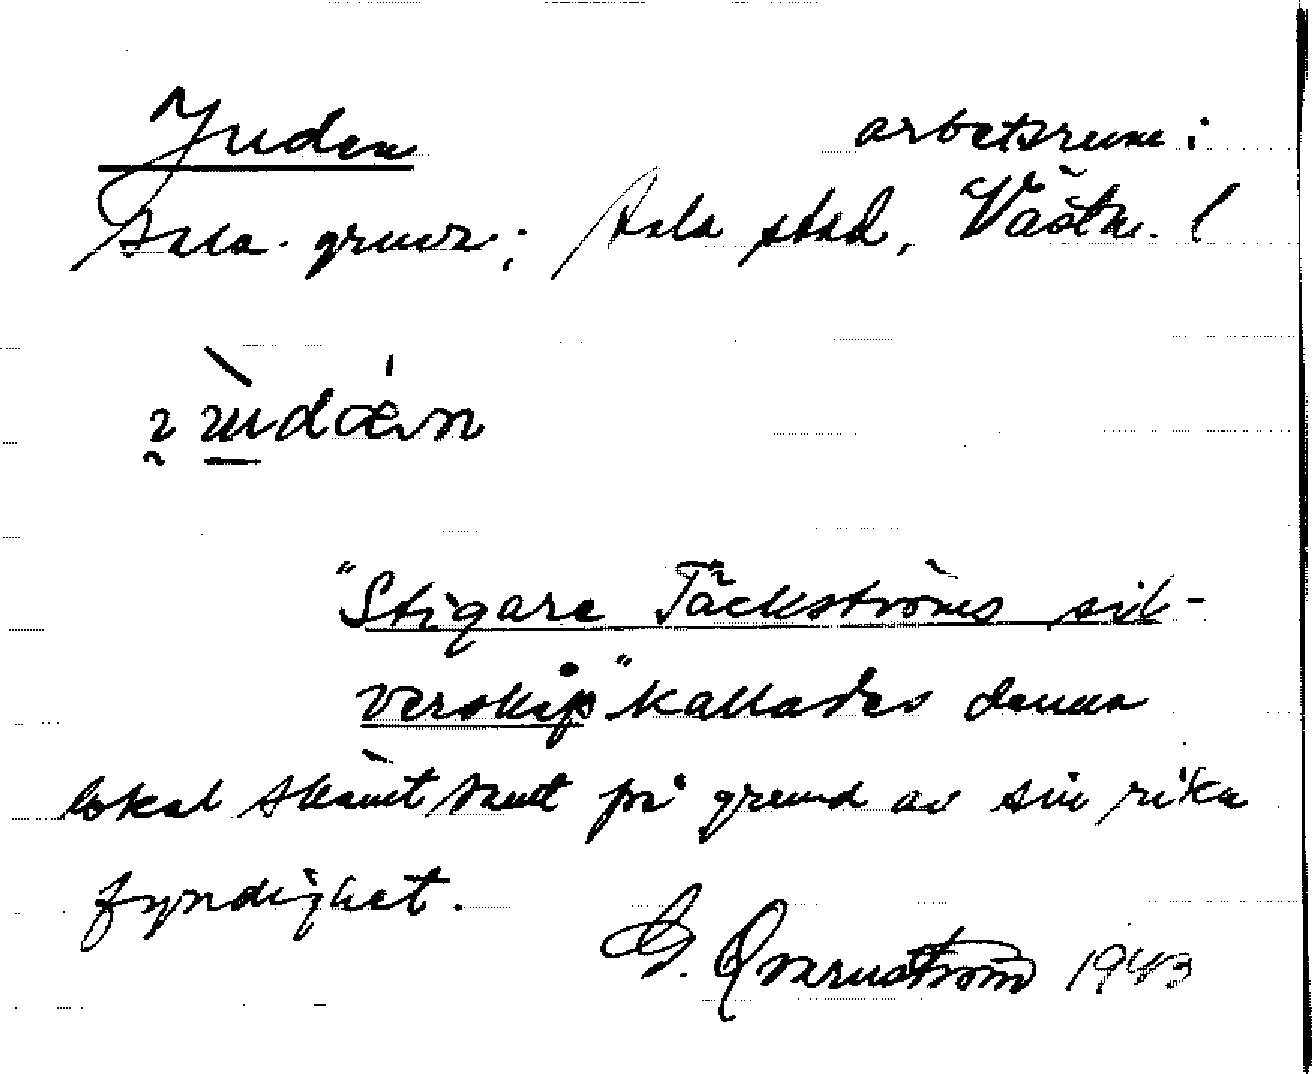 Juden arbetsrum i
Sala gruva; Sala stad, Västm. l
"Stigare Täckströms sil-
verskip" kallades denna
lokal skämtsamt på grund av sin rika
fyndighet.
G. Qvarnström 1943